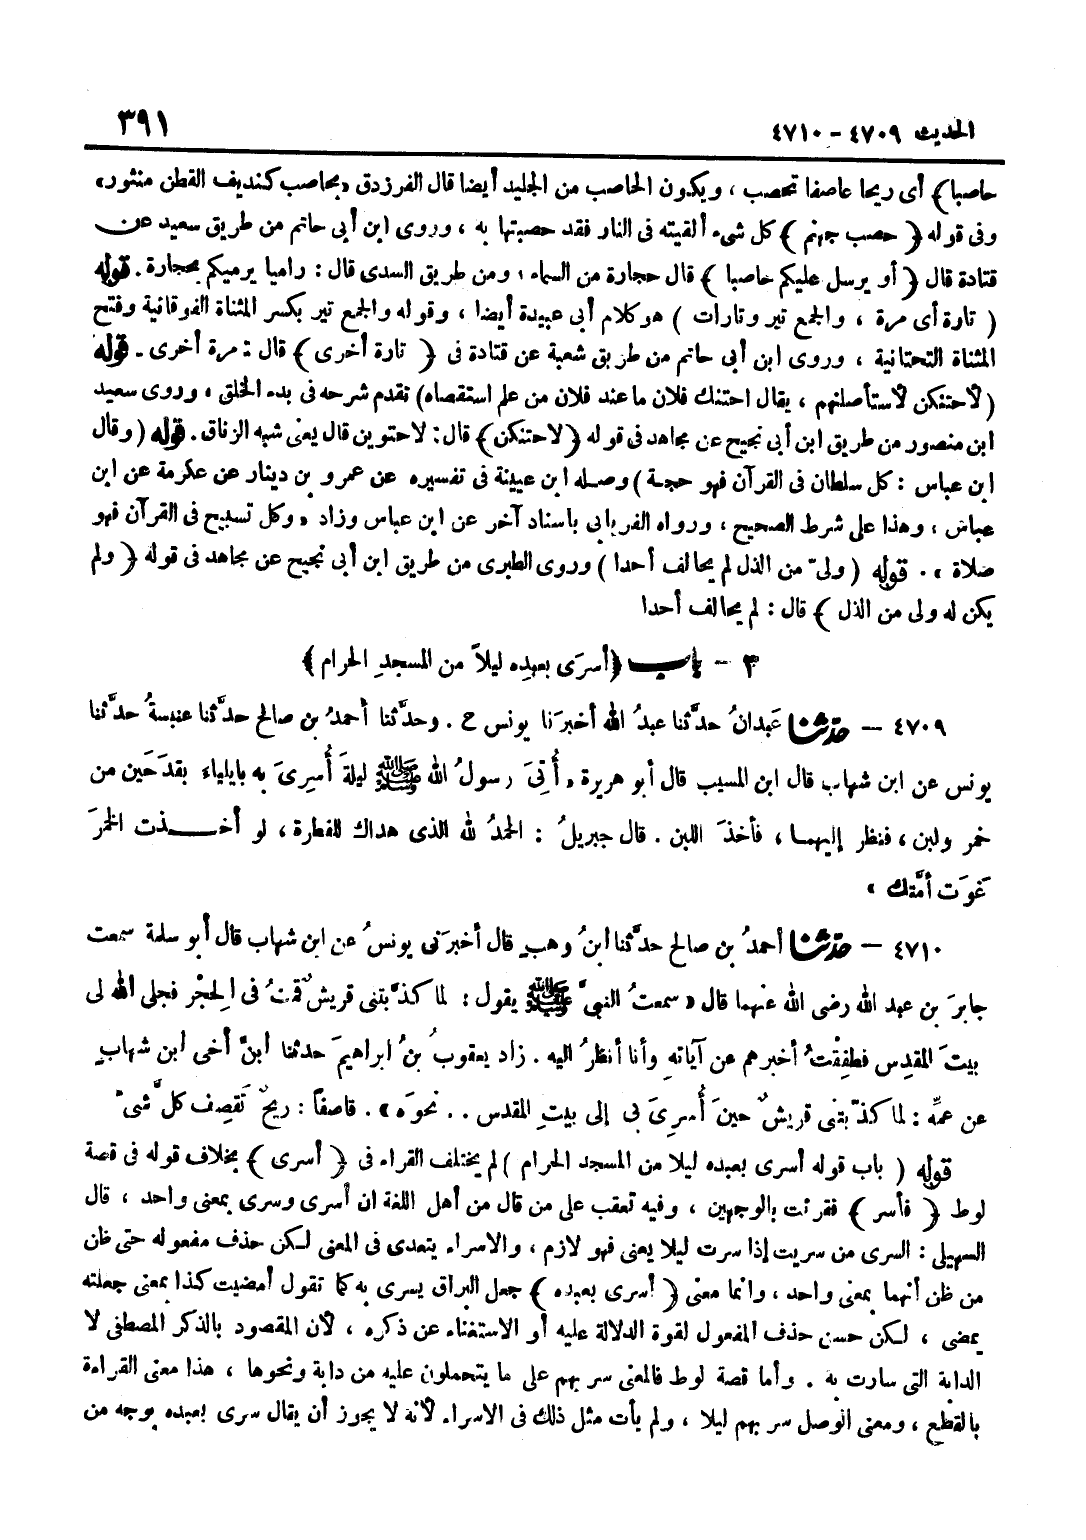 الحديث ٤٧٠٩ - ٤٧١٠
٣٩١
حاصبا ﴾ أى ريحا عاصفا تحصب ، ويكون الحاصب من الجليد أيضا قال الفرزدق « بحاصب كنديف القطن منثور »
وفى قوله ﴿ حصب جهنم ﴾ كل شىء ألقيته فى النار فقد حصبتها به ، وروى ابن أبى حاتم من طريق سعيد عن
قتادة قال ﴿ أو يرسل عليكم حاصبا ﴾ قال حجارة من السماء ، ومن طريق السدى قال : راميا يرميكم بحجارة . قوله
( تارة أى مرة ، والجمع تير وتارات ) هو كلام أبى عبيدة أيضا ، وقوله والجمع تير بكسر المثناة الفوقانية وفتح
المثناة التحتانية ، وروى ابن أبى حاتم من طريق شعبة عن قتادة فى ﴿ تارة أخرى ﴾ قال : مرة أخرى . قوله
( لأحتنكن لأستأصلنهم ، يقال احتنك فلان ما عند فلان من علم استقصاه ) تقدم شرحه فى بدء الخلق ، وروى سعيد
ابن منصور من طريق ابن أبى نجيح عن مجاهد فى قوله ﴿ لاحتنكن ﴾ قال : لاحتوين قال يعنى شبه الزناق . قوله ( وقال
ابن عباس : كل سلطان فى القرآن فهو حجة ) وصله ابن عيينة فى تفسيره عن عمرو بن دينار عن عكرمة عن ابن
عباس ، وهذا على شرط الصحيح ، ورواه الفريابى باسناد آخر عن ابن عباس وزاد « وكل تسبيح فى القرآن فهو
صلاة » . قوله ( ولىّ من الذل لم يحالف أحدا ) وروى الطبرى من طريق ابن أبى نجيح عن مجاهد فى قوله ﴿ ولم
يكن له ولى من الذل ﴾ قال : لم يحالف أحدا
٣ - باب ﴿ أسرَى بعبدِه ليلاً من المسجدِ الحرام ﴾
٤٧٠٩ - حدّثنا عَبدانُ حدَّثنا عبدُ الله أخبرَنا يونس ح . وحدَّثنا أحمدُ بن صالح حدَّثنا عنبسةُ حدَّثنا
يونس عن ابن شهاب قال ابن المسيب قال أبو هريرة « أُتىَ رسولُ الله ﷺ ليلةَ أُسرِىَ به بايلياء بقدَحَين من
خمر ولبن ، فنظر إليهما ، فأخذَ اللبن . قال جبريلُ : الحمدُ لله الذى هداك للفطرة ، لو أخذت الخمرَ
غَوَت أمَّتك »
٤٧١٠ - حدّثنا أحمدُ بن صالح حدَّثنا ابنُ وهبٍ قال أخبرَنى يونسُ عن ابن شهاب قال أبو سلمة سمعت
جابرَ بن عبد الله رضى الله عنهما قال « سمعتُ النبىَّ ﷺ يقول : لما كذَّبتنى قريشٌ قمتُ فى الحِجْر فجلى اللهُ لى
بيتَ المقدِس فطفِقْتُ أخبرهم عن آياتهِ وأنا أنظرُ اليه . زاد يعقوبُ بنُ ابراهيمَ حدثنا ابنُ أخى ابن شهابٍ
عن عمِّه : لما كذَّبتنى قريشٌ حينَ أُسرِىَ بى إلى بيتِ المقدس . . نحوَه » . قاصفاً : ريحٌ تَقصِف كلَّ شىءٍ
قوله ( باب قوله أسرى بعبده ليلا من المسجد الحرام ) لم يختلف القراء فى ﴿ أسرى ﴾ بخلاف قوله فى قصة
لوط ﴿ فأسر ﴾ فقرئت بالوجهين ، وفيه تعقب على من قال من أهل اللغة ان أسرى وسرى بمعنى واحد ، قال
السهيلى : السرى من سريت إذا سرت ليلا يعنى فهو لازم ، والاسراء يتعدى فى المعنى لكن حذف مفعوله حتى ظن
من ظن أنهما بمعنى واحد ، وانما معنى ﴿ أسرى بعبده ﴾ جعل البراق يسرى به كما تقول أمضيت كذا بمعنى جعلته
يمضى ، لكن حسن حذف المفعول لقوة الدلالة عليه أو الاستغناء عن ذكره ، لأن المقصود بالذكر المصطفى لا
الدابة التى سارت به . وأما قصة لوط فالمعنى سر بهم على ما يتحملون عليه من دابة ونحوها ، هذا معنى القراءة
بالقطع ، ومعنى الوصل سر بهم ليلا ، ولم يأت مثل ذلك فى الاسراء لأنه لا يجوز أن يقال سرى بعبده بوجه من